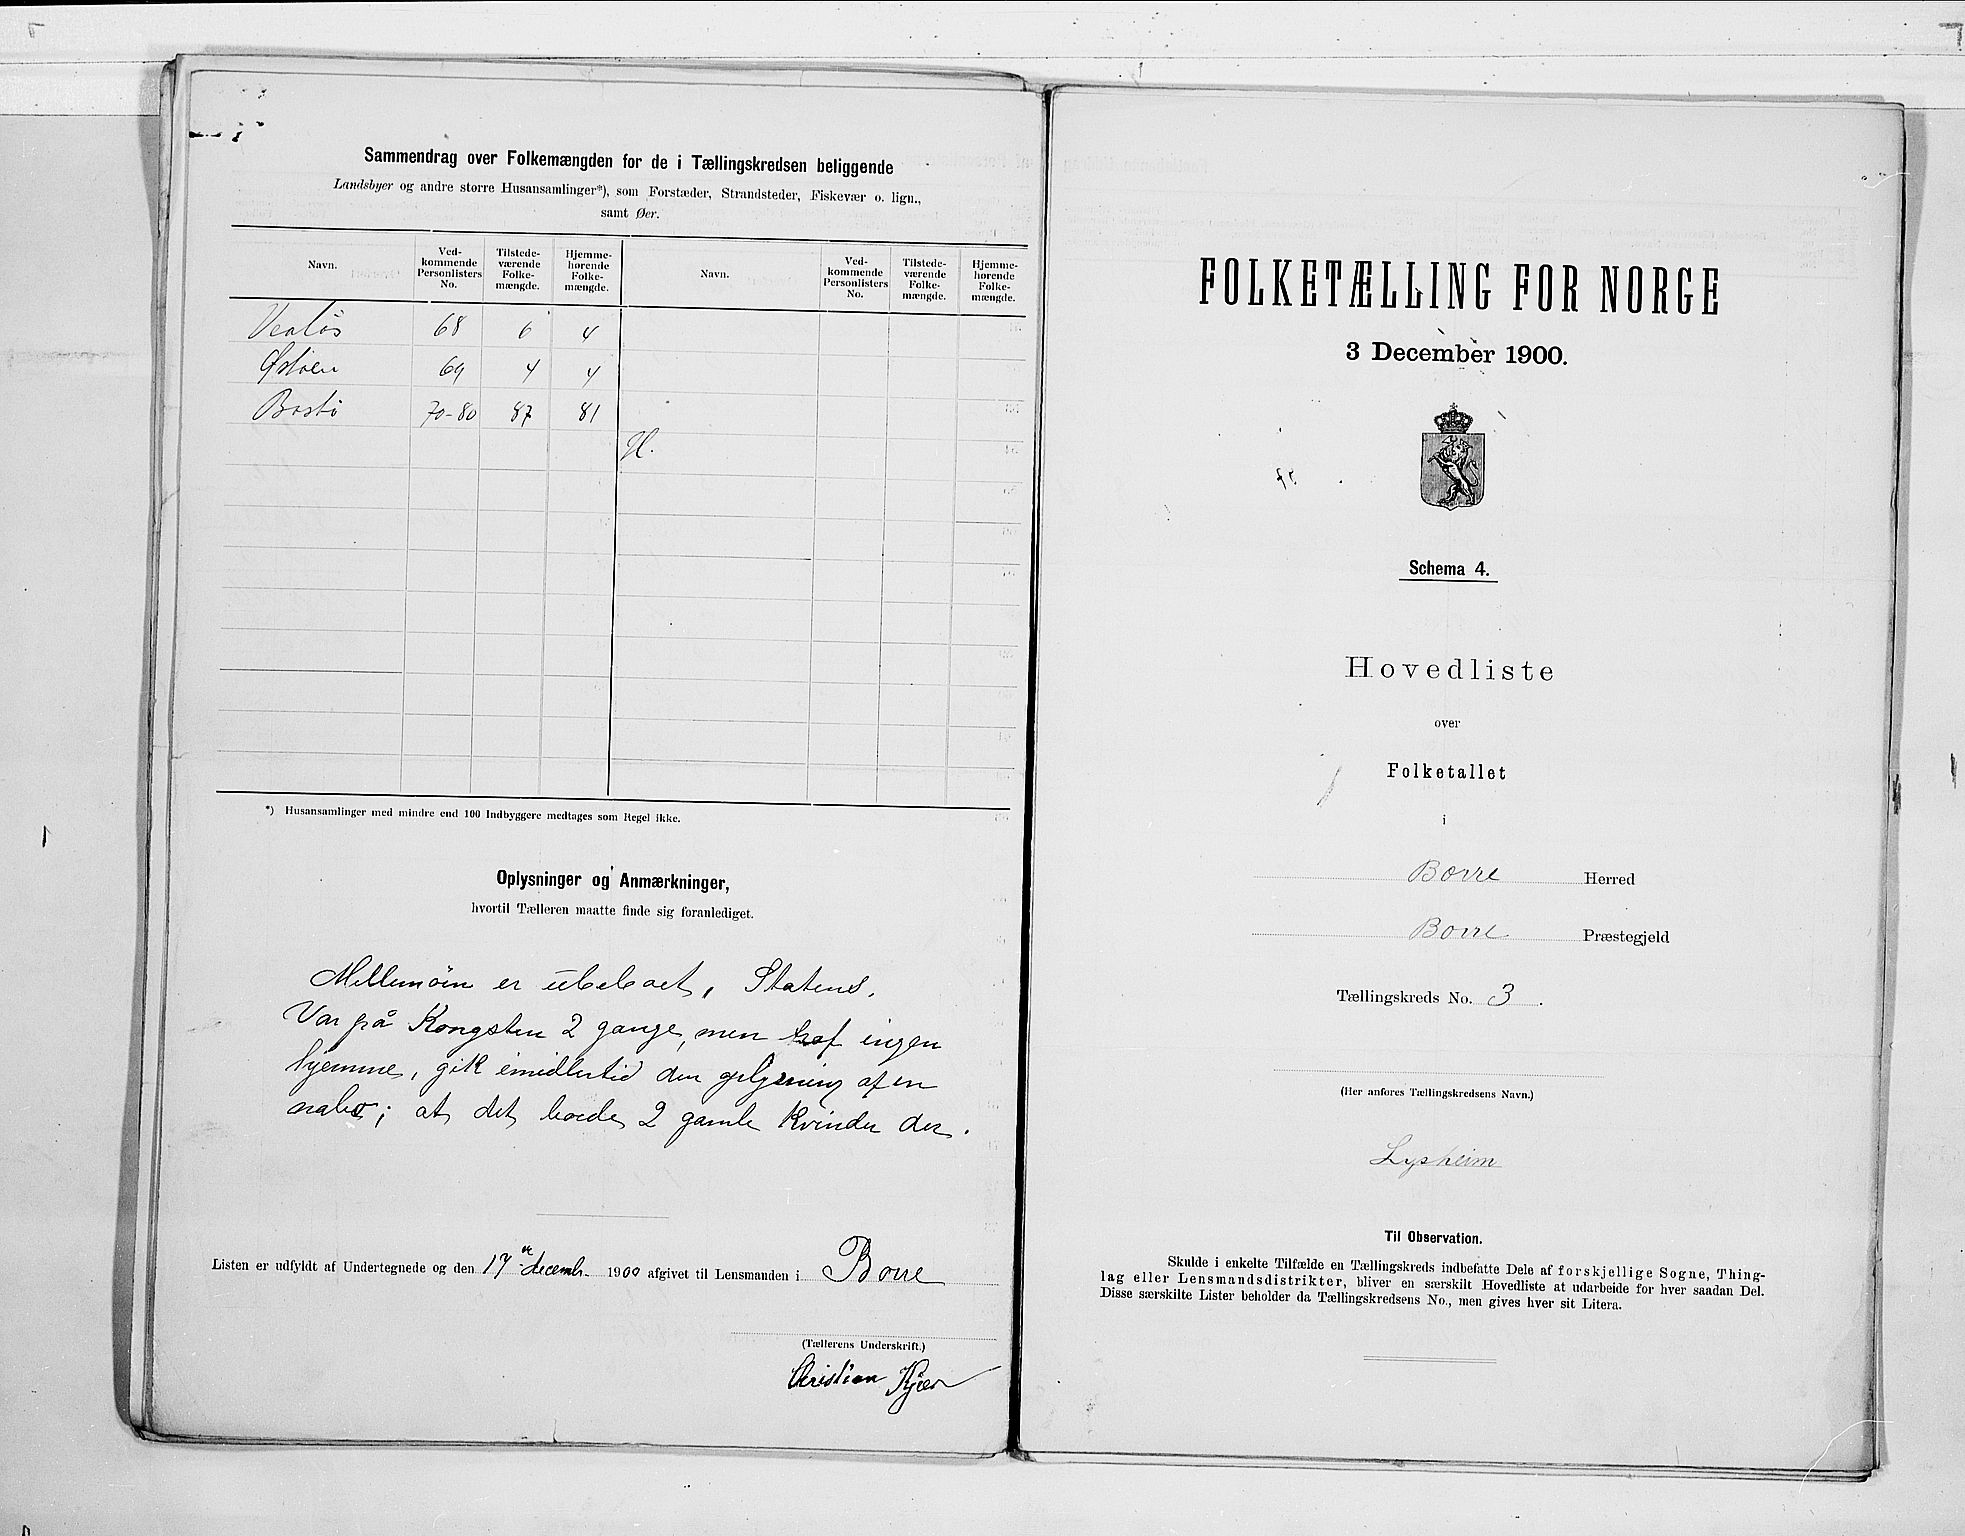 Sammendrag over Folkemængden for de i Tællingskredsen beliggende
Landsbyer og andre større Husansamlinger*), som Forstæder, Strandsteder, Fiskevær o. lign.,
samt Øer.
Navn. Ved-kommende Personlisters No. Tilstede-værende Folke-mængde. Hjemme-hørende Folke-mængde. Navn. Ved-kommende Personlisters No. Tilstede-værende Folke-mængde. Hjemme-hørende Folke-mængde.
Vealøs 68 6 4
Østøen 69 4 4
Bastö 70-80 87 81
H.
*) Husansamlinger med mindre end 100 Indbyggere medtages som Regel ikke.
Oplysninger og Anmærkninger,
hvortil Tælleren maatte finde sig foranlediget.
Mellemöen er ubeboet, Statens.
Var på Kongsten 2 gange, men traf ingen
hjemme, gik imidlertid den oplysning af en
nabo; at det boede 2 gamle Kvinder der.
Listen er udfyldt af Undertegnede og den 17de decembr. 1900 afgivet til Lensmanden i Borre
(Tællerens Underskrift.)
Christian Kjær
FOLKETÆLLING FOR NORGE
3 December 1900.
Schema 4.
Hovedliste
over
Folketallet
i
Borre Herred
Borre Præstegjeld
Tællingskreds No. 3.
(Her anføres Tællingskredsens Navn.)
Lysheim
Til Observation.
Skulde i enkelte Tilfælde en Tællingskreds indbefatte Dele af forskjellige Sogne, Thing-
lag eller Lensmandsdistrikter, bliver en særskilt Hovedliste at udarbeide for hver saadan Del.
Disse særskilte Lister beholder da Tællingskredsens No., men gives hver sit Litera.